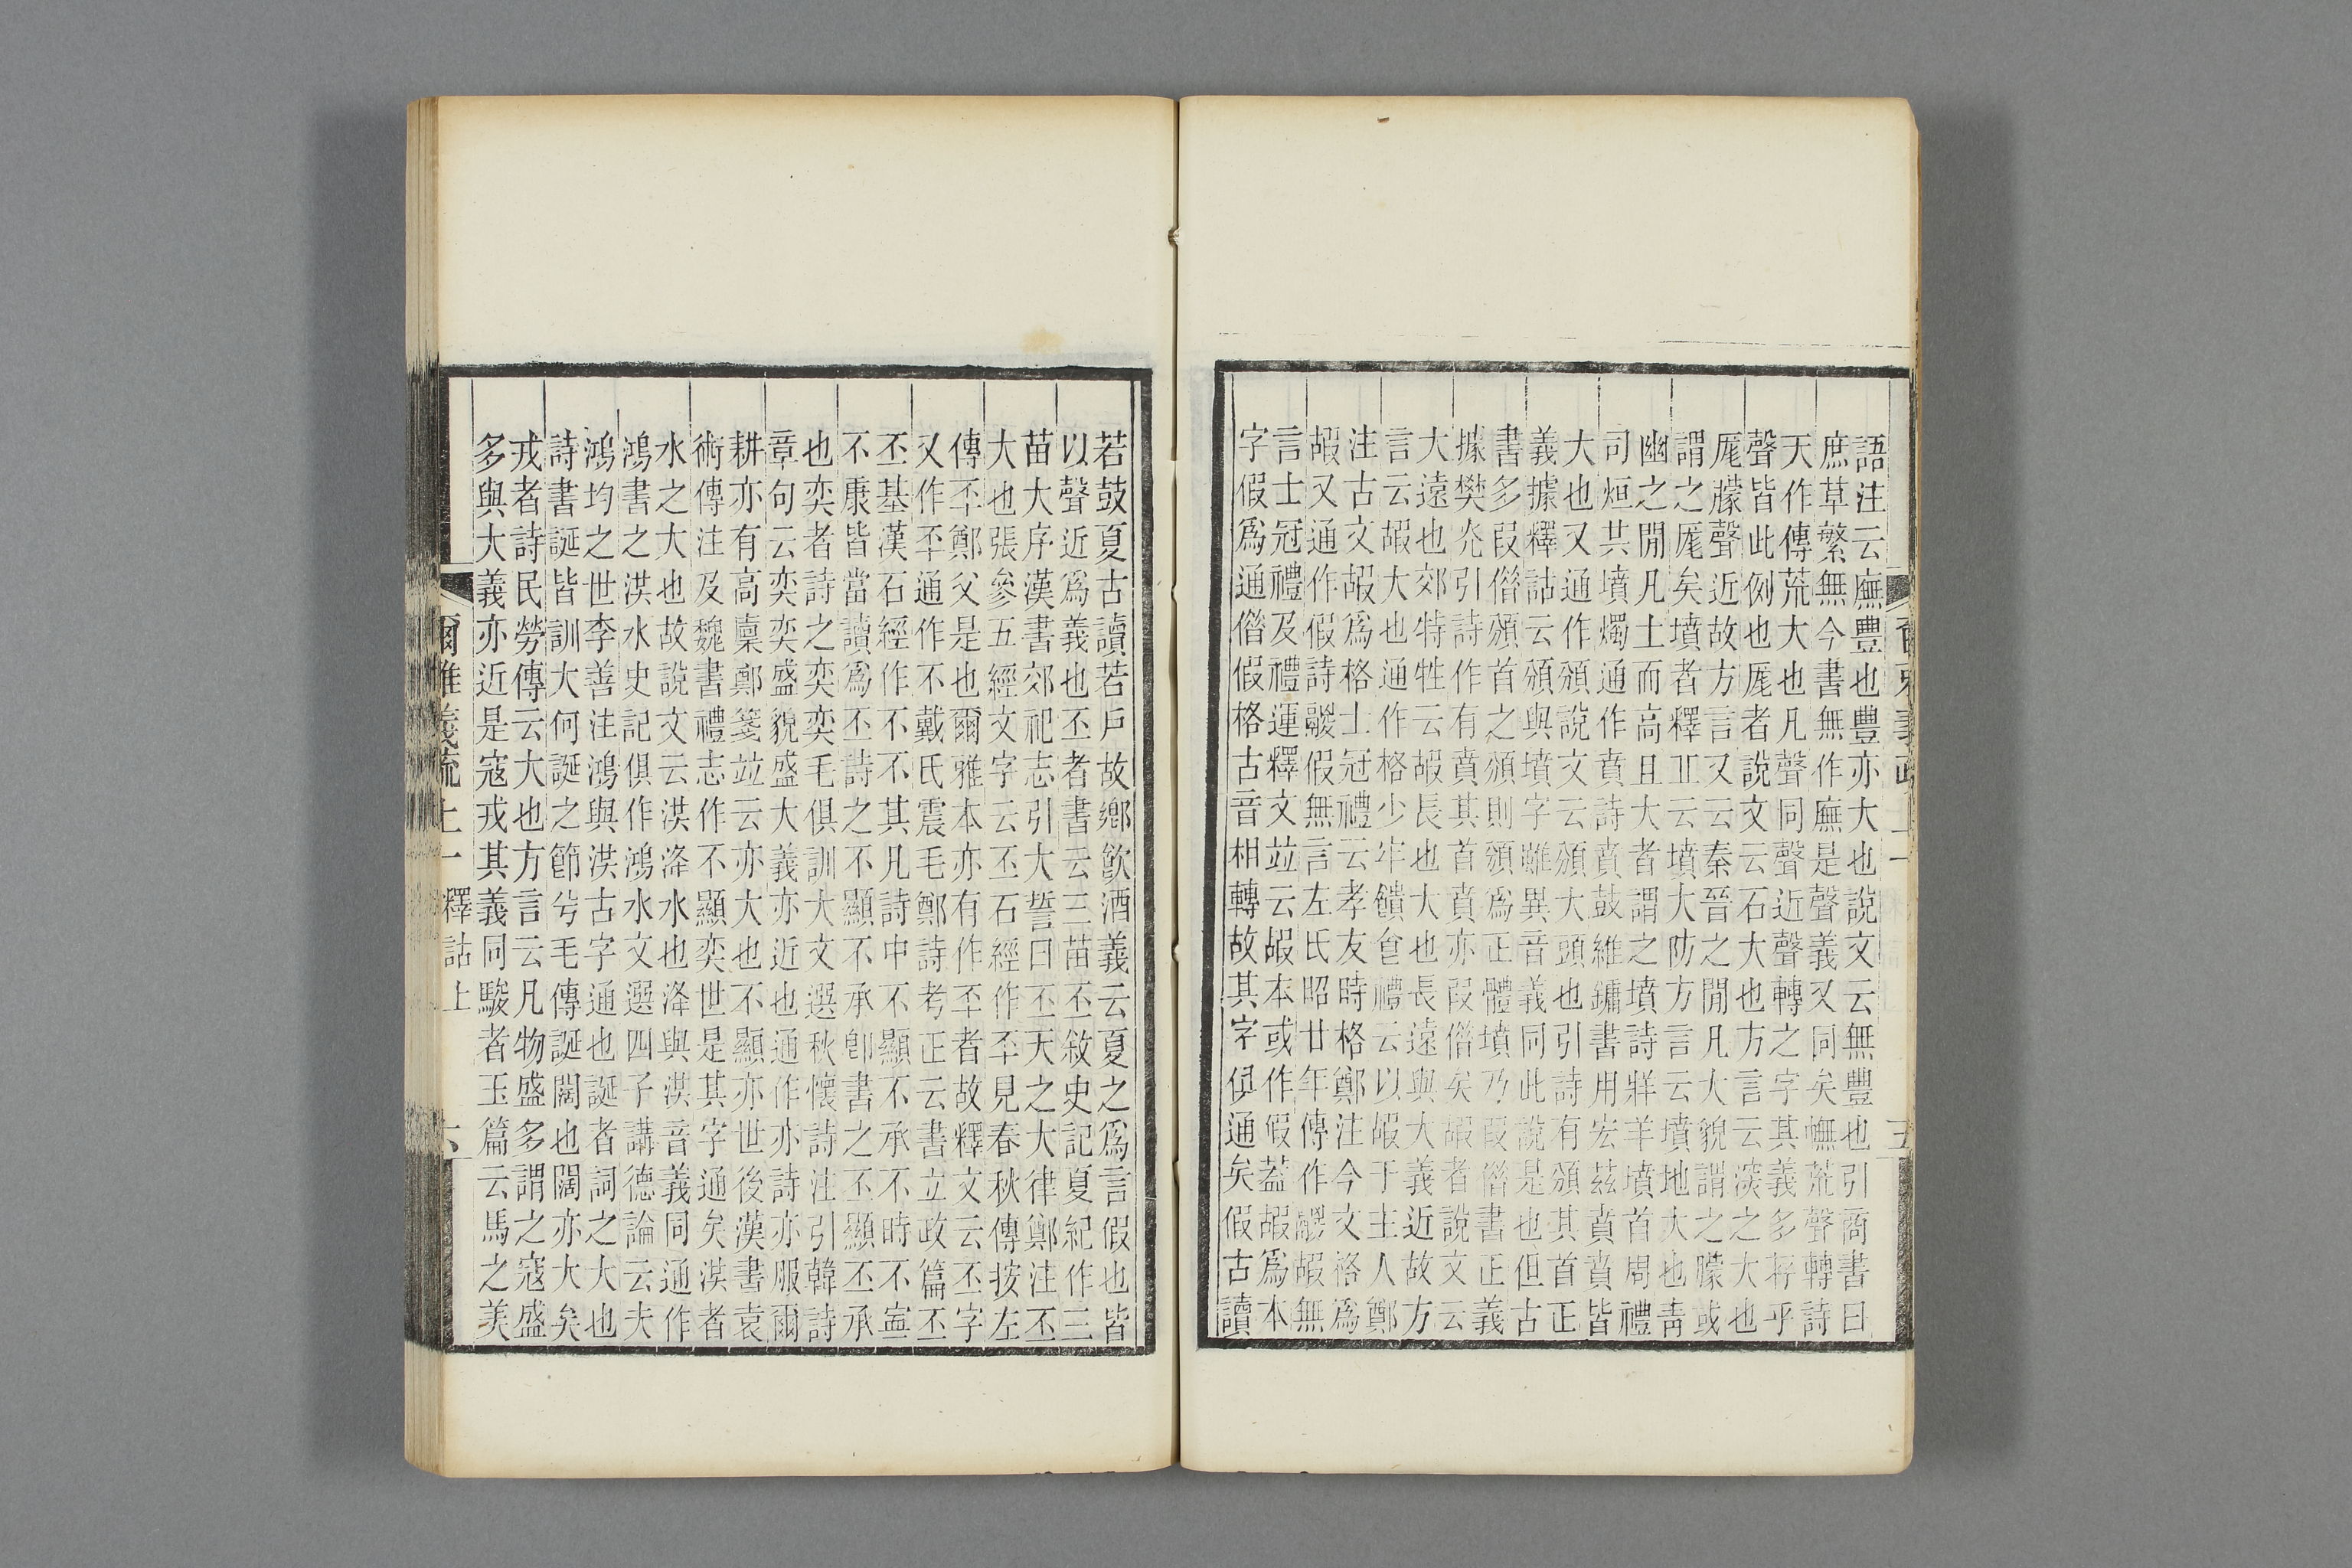 語注云廡豐也豐亦大也說文云無豐也引商書曰
庶草繁無今書無作廡是聲義又同矣幠荒聲轉詩
天作傳荒大也凡聲同聲近聲轉之字其義多存乎
聲皆此例也厖者說文云石大也方言云湙之大也
厖朦聲近故方言又云秦晉之閒凡大貌謂之朦或
謂之厖矣墳者釋丘云墳大防方言云墳地大也靑
幽之閒凡土而高且大者謂之墳詩牂羊墳首周禮
司烜共墳燭通作蕡詩賁鼓維鏞書用宏茲賁賁皆
大也又通作頒說文云頒大頭也引詩有頒其首正
義據釋詁云頒與墳字雖異音義同此說是也但古
書多叚僭頒首之頒則頒爲正體墳乃叚僭書正義
據樊光引詩作有蕡其首蕡亦叚僭矣嘏者說文云
大遠也郊特牲云嘏長也大也長遠與大義近故方
言云嘏大也通作格少牢饋食禮云以嘏于主人鄭
注古文嘏爲格士冠禮云孝友時格鄭注今文格爲
嘏又通作假詩鬷假無言左氏昭廿年傳作鬷嘏無
言士冠禮及禮運釋文竝云嘏本或作假蓋嘏爲本
字假爲通僭假格古音相轉故其字俱通矣假古讀
若鼓夏古讀若戶故鄉飮酒義云夏之爲言假也皆
以聲近爲義也丕者書云三苗丕敘史記夏紀作三
苗大序漢書郊祀志引大誓曰丕天之大律鄭注丕
大也張參五經文字云丕石經作㔻見春秋傳按左
傳㔻鄭父是也爾雅本亦有作㔻者故釋文云丕字
又作㔻通作不戴氏震毛鄭詩考正云書立政篇丕
丕基漢石經作不不其凡詩中不顯不承不時不寍
不康皆當讀爲丕詩之不顯不承卽書之丕顯丕承
也奕者詩之奕奕毛俱訓大文選秋懷詩注引韓詩
章句云奕奕盛貌盛大義亦近也通作亦詩亦服爾
耕亦有高廩鄭箋竝云亦大也不顯亦世後漢書袁
術傳注及魏書禮志作不顯奕世是其字通矣洪者
水之大也故說文云洪洚水也洚與洪音義同通作
鴻書之洪水史記俱作鴻水文選四子講德論云夫
鴻均之世李善注鴻與洪古字通也誕者詞之大也
詩書誕皆訓大何誕之節兮毛傳誕闊也闊亦大矣
戎者詩民勞傳云大也方言云凡物盛多謂之寇盛
多與大義亦近是寇戎其義同駿者玉篇云馬之美
爾雅義疏上一 釋詁上 六